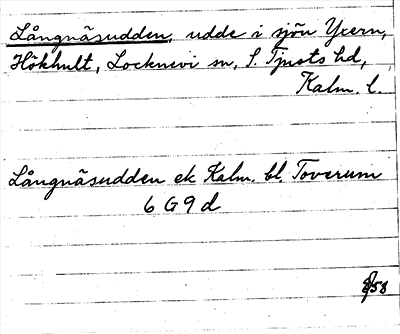 Långnäsudden, udde i sjön Yxern,
Hökhult, Locknevi sn, S. Tjusts hd,
Kalm. l.
Långnäsudden ek Kalm. bl. Toverum
6 G 9 d